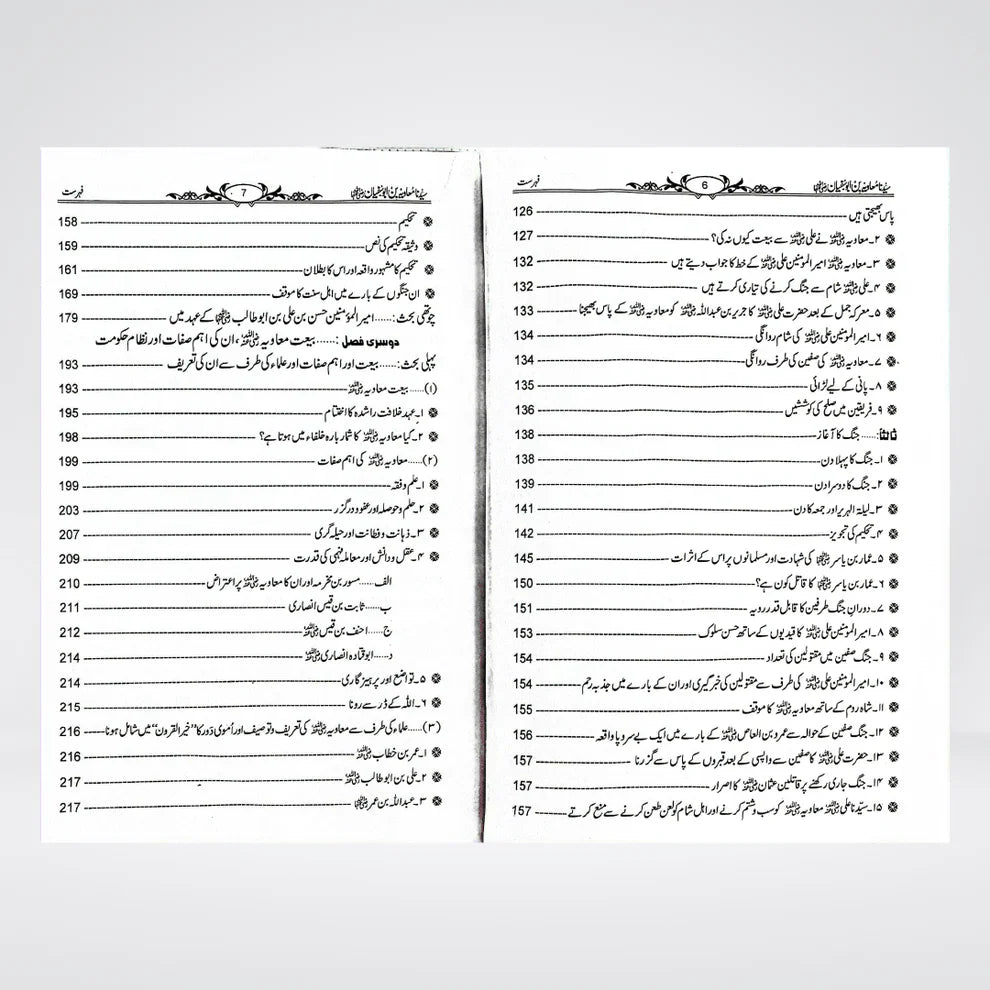 سیّدنا معاویہ بن ابوسفیان رضی اللہ عنہ 6 فہرست
پاس بھیجتی ہیں 126
۲۔ معاویہ رضی اللہ عنہ نے علی رضی اللہ عنہ سے بیعت کیوں نہ کی؟ 127
۳۔ معاویہ رضی اللہ عنہ امیر المؤمنین علی رضی اللہ عنہ کے خط کا جواب دیتے ہیں 132
۴۔ علی رضی اللہ عنہ شام سے جنگ کرنے کی تیاری کرتے ہیں 132
۵۔ معرکہ جمل کے بعد حضرت علی رضی اللہ عنہ کا جریر بن عبداللہ رضی اللہ عنہ کو معاویہ رضی اللہ عنہ کے پاس بھیجنا 133
۶۔ امیر المؤمنین علی رضی اللہ عنہ کی شام روانگی 134
۷۔ معاویہ رضی اللہ عنہ کی صفین کی طرف روانگی 134
۸۔ پانی کے لیے لڑائی 135
۹۔ فریقین میں صلح کی کوششیں 136
ثالثاً:...... جنگ کا آغاز 138
۱۔ جنگ کا پہلا دن 138
۲۔ جنگ کا دوسرا دن 139
۳۔ لیلۃ الہریر اور جمعہ کا دن 141
۴۔ تحکیم کی تجویز 142
۵۔ عمار بن یاسر رضی اللہ عنہ کی شہادت اور مسلمانوں پر اس کے اثرات 145
۶۔ عمار بن یاسر رضی اللہ عنہ کا قاتل کون ہے؟ 150
۷۔ دورانِ جنگ طرفین کا قابل قدر رویہ 151
۸۔ امیر المؤمنین علی رضی اللہ عنہ کا قیدیوں کے ساتھ حسن سلوک 153
۹۔ جنگ صفین میں مقتولین کی تعداد 154
۱۰۔ امیر المؤمنین علی رضی اللہ عنہ کی طرف سے مقتولین کی خبر گیری اور ان کے بارے میں جذبہ رحم 154
۱۱۔ شاہ روم کے ساتھ معاویہ رضی اللہ عنہ کا موقف 155
۱۲۔ جنگ صفین کے حوالہ سے عمرو بن العاص رضی اللہ عنہ کے بارے میں ایک بے سروپا واقعہ 156
۱۳۔ حضرت علی رضی اللہ عنہ کا صفین سے واپسی کے بعد قبروں کے پاس سے گزرنا 157
۱۴۔ جنگ جاری رکھنے پر قاتلین عثمان رضی اللہ عنہ کا اصرار 157
۱۵۔ سیّدنا علی رضی اللہ عنہ معاویہ رضی اللہ عنہ کو سب و شتم کرنے اور اہل شام کو لعن طعن کرنے سے منع کرتے 157
سیّدنا معاویہ بن ابوسفیان رضی اللہ عنہ 7 فہرست
تحکیم 158
وثیقہ تحکیم کی نص 159
تحکیم کا مشہور واقعہ اور اس کا بطلان 161
ان جنگوں کے بارے میں اہل سنت کا موقف 169
چوتھی بحث:...... امیر المؤمنین حسن بن علی بن ابو طالب رضی اللہ عنہ کے عہد میں 179
دوسری فصل :...... بیعت معاویہ رضی اللہ عنہ، ان کی اہم صفات اور نظام حکومت
پہلی بحث:...... بیعت اور اہم صفات اور علماء کی طرف سے ان کی تعریف 193
(۱)...... بیعت معاویہ رضی اللہ عنہ 193
۱۔ عہد خلافت راشدہ کا اختتام 195
۲۔ کیا معاویہ رضی اللہ عنہ کا شمار بارہ خلفاء میں ہوتا ہے؟ 198
(۲)...... معاویہ رضی اللہ عنہ کی اہم صفات 199
۱۔ علم و فقہ 199
۲۔ حلم و حوصلہ اور عفو و درگزر 203
۳۔ ذہانت و فطانت اور حیلہ گری 207
۴۔ عقل و دانش اور معاملہ فہمی کی قدرت 209
الف...... مسور بن مخرمہ اور ان کا معاویہ رضی اللہ عنہ پر اعتراض 210
ب...... ثابت بن قیس انصاری 211
ج...... احنف بن قیس رضی اللہ عنہ 212
د...... ابوقتادہ انصاری رضی اللہ عنہ 214
۵۔ تواضع اور پرہیز گاری 214
۶۔ اللہ کے ڈر سے رونا 215
(۳)...... علماء کی طرف سے معاویہ رضی اللہ عنہ کی تعریف و توصیف اور اُموی دَور کا ”خیر القرون“ میں شامل ہونا 216
۱۔ عمر بن خطاب رضی اللہ عنہ 216
۲۔ علی بن ابو طالب رضی اللہ عنہ 217
۳۔ عبداللہ بن عمر رضی اللہ عنہما 217